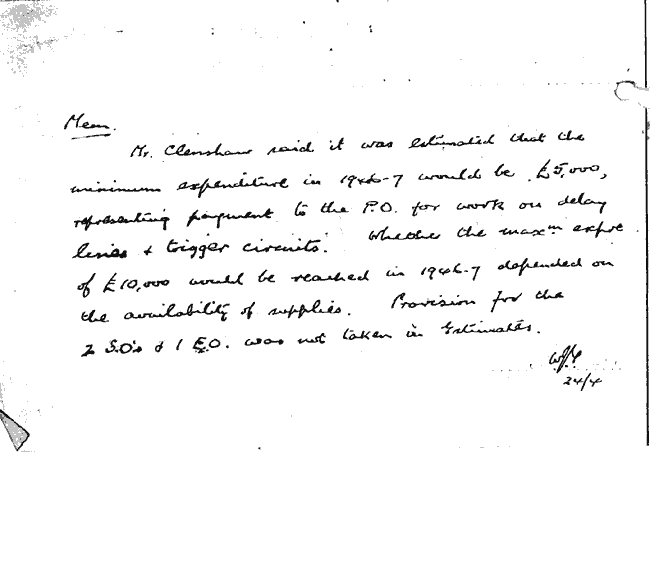 Mem.
Mr. Clenshaw said it was estimated that the
minimum expenditure in 1946-7 would be £5,000,
representing payment to the P.O. for work on delay
lines & trigger circuits. Whether the maxm expre
of £10,000 would be reached in 1946-7 depended on
the availability of supplies. Provision for the
2 S.O's & 1 E.O. was not taken in Estimates.
24/4